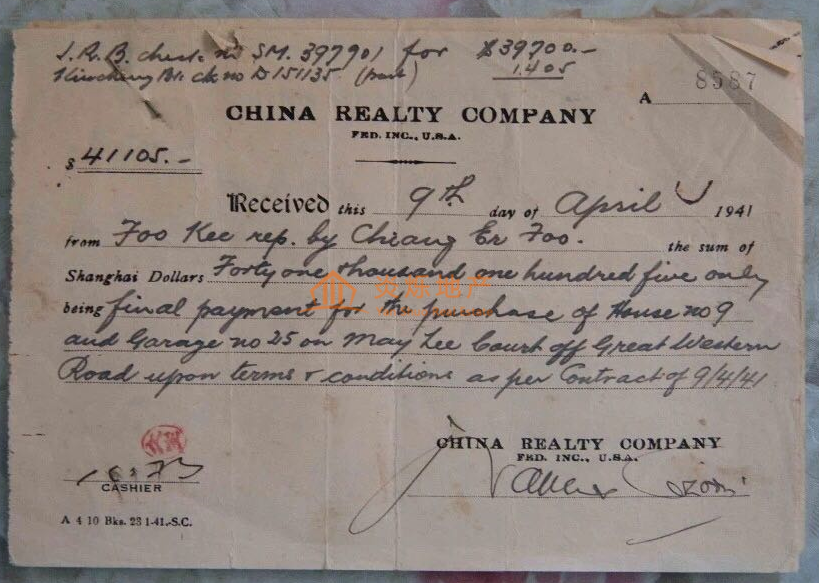 J.R.B. check no SM. 397901 for $39700.-
Kincheng Bk. ck no D151135 (part) 1.405
A 8587
CHINA REALTY COMPANY
FED. INC., U.S.A.
$ 41105.-
Received this 9th day of April 1941
from Foo Kee rep. by Chiang Er Foo. the sum of
Shanghai Dollars Forty one thousand one hundred five only
being final payment for the purchase of House no 9
and Garage no 25 on May Lee Court off Great Western
Road upon terms & conditions as per Contract of 9/4/41
炎烁地产
CHINA REALTY COMPANY
FED. INC., U.S.A.
CASHIER
A 4 10 Bks. 23 1-41.-S.C.